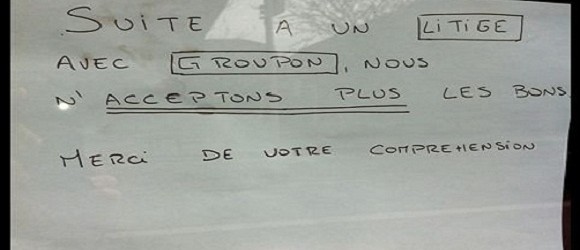 SUITE A UN LITIGE
AVEC GROUPON, NOUS
N' ACCEPTONS PLUS LES BONS
MERCi DE VOTRE COMPREHENSiON